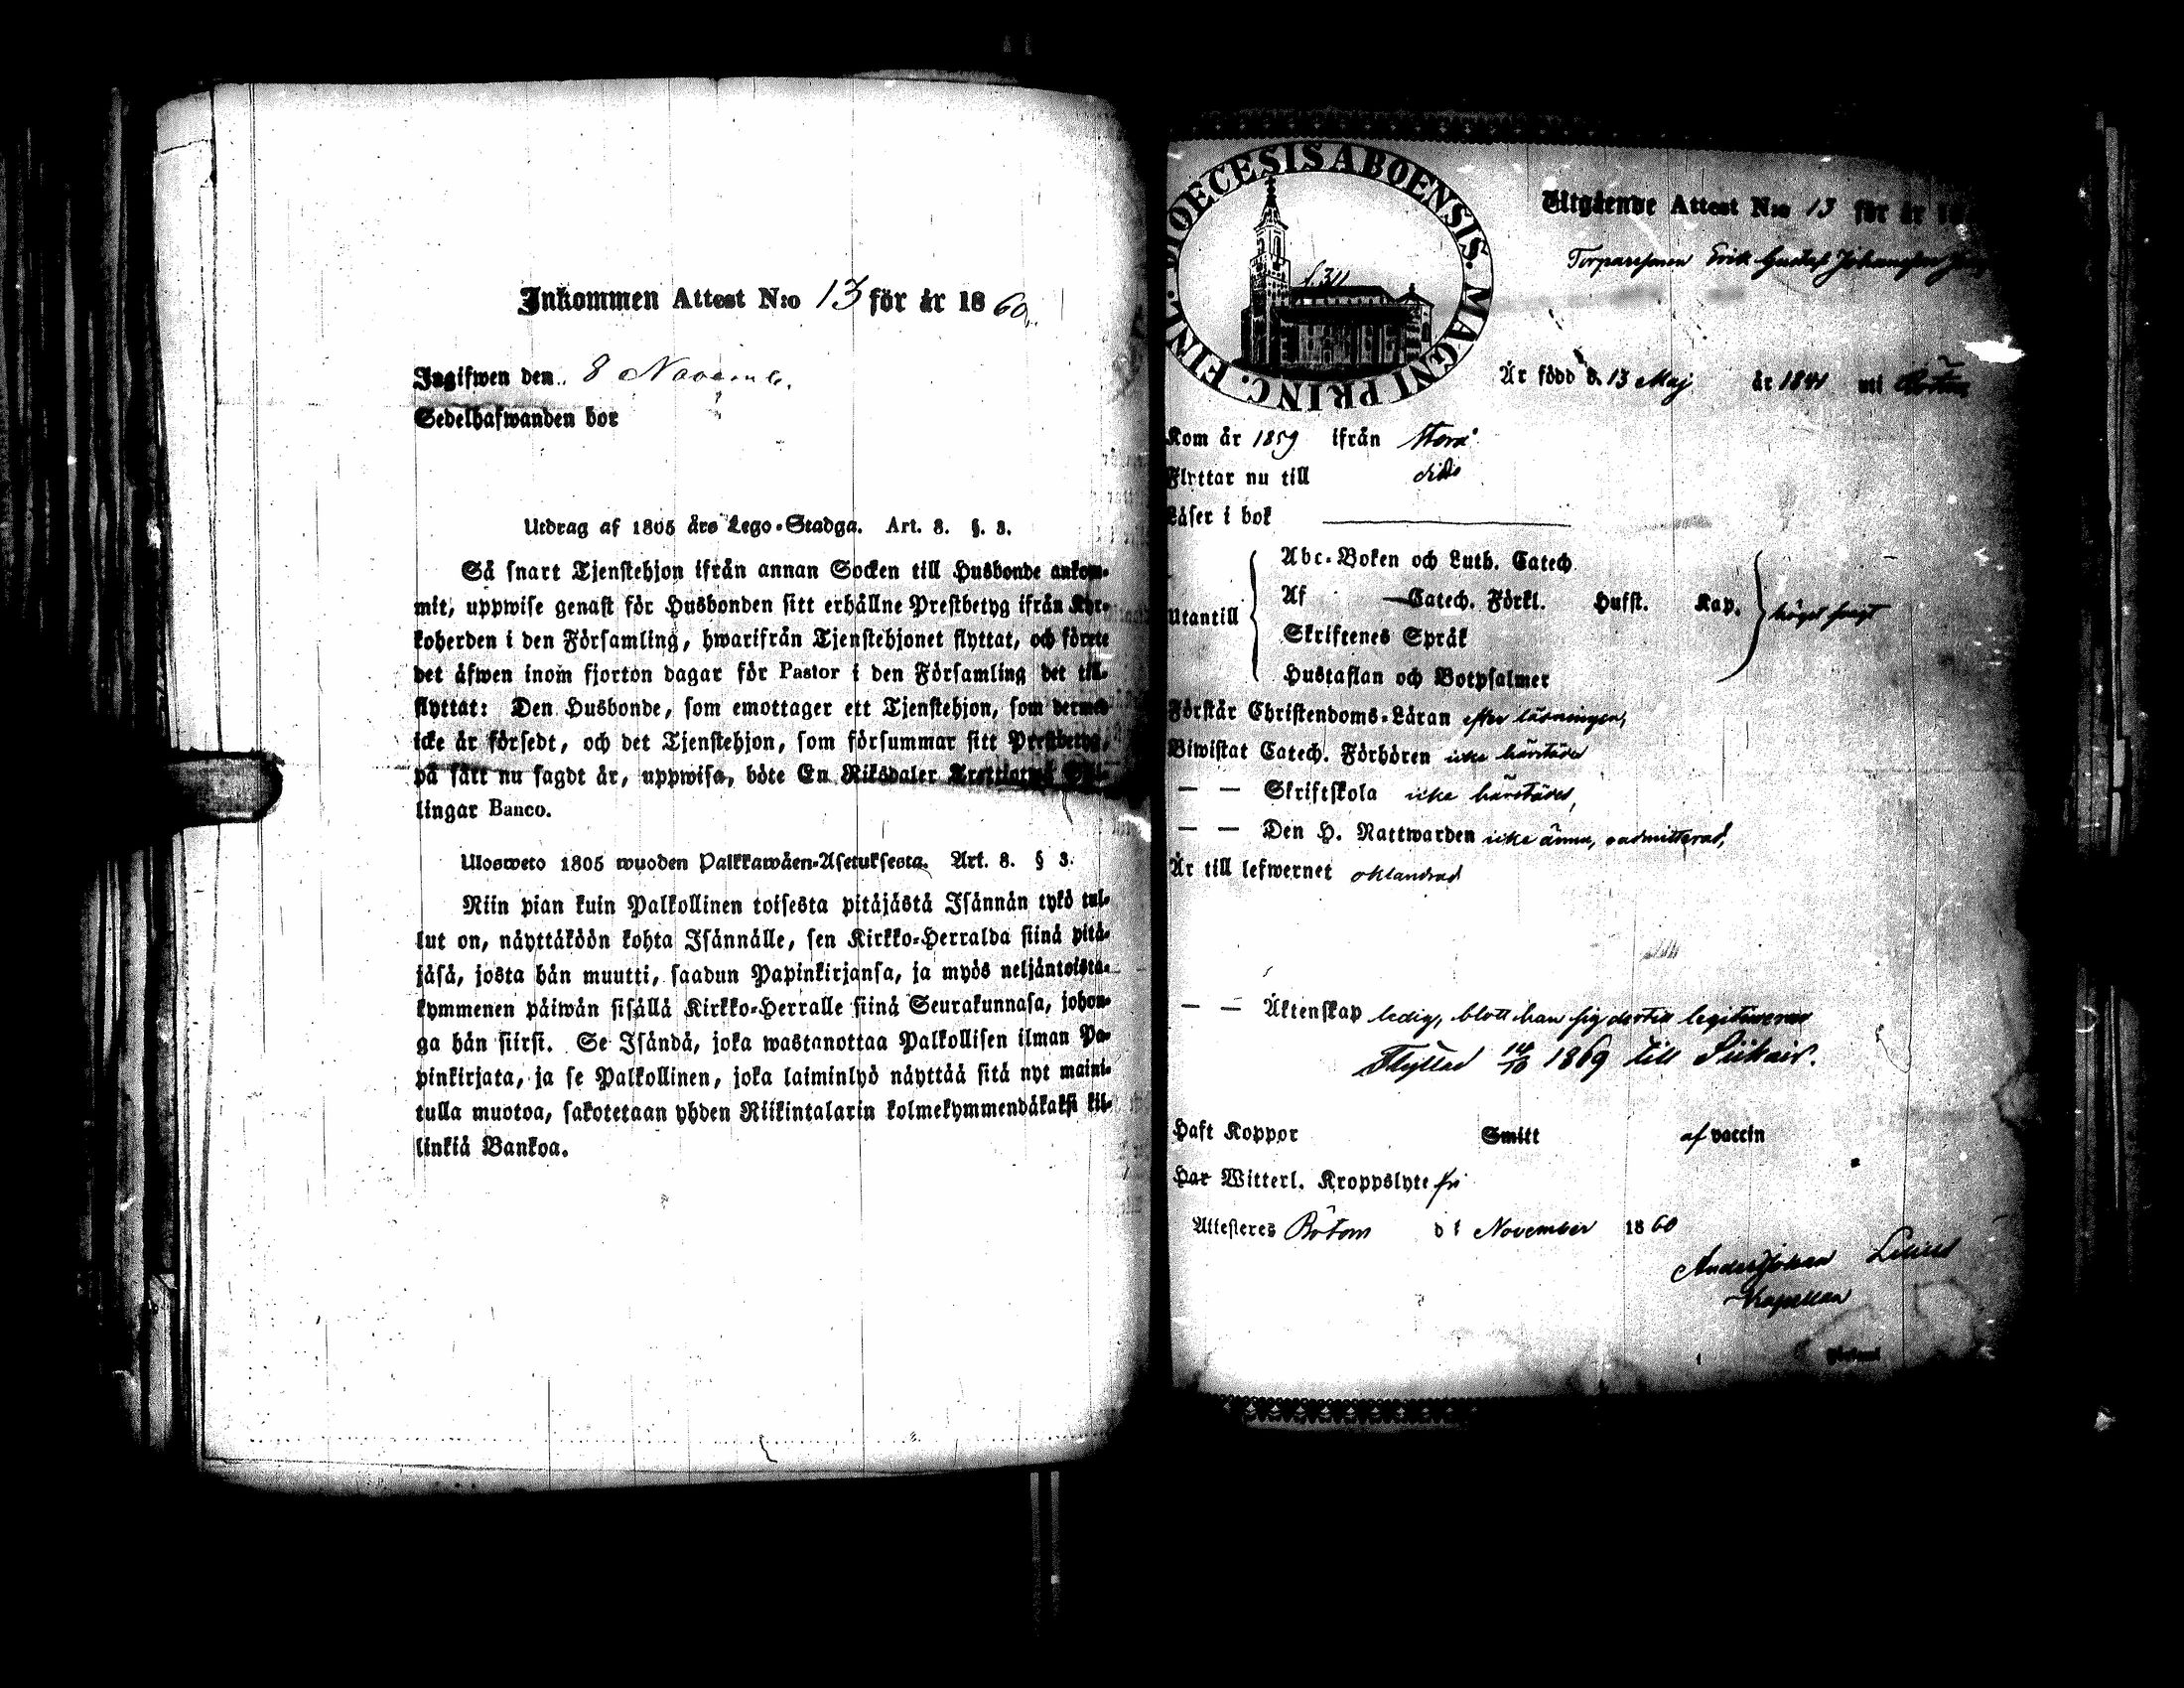 Inkommen Attest N:o 13 för år 1860.
Ingifwen den 8 Novemb.
Sedelhafwanden bor
Utdrag af 1805 års Lego-Stadga. Art. 8. §. 3.
Så snart Tjenstehjon ifrån annan Socken till Husbonde ankom-
mit, uppwise genast för Husbonden sitt erhållne Prestbetyg ifrån Kyr-
koherden i den Församling, hwarifrån Tjenstehjonet flyttat, och förete
det äfwen inom fjorton dagar för Pastor i den Församling det till-
flyttat: Den Husbonde, som emottager ett Tjenstehjon, som dermed
icke är försedt, och det Tjenstehjon, som försummar sitt Prestbetyg,
på sätt nu sagdt är, uppwisa, böte En Riksdaler Trettiotwå Skil-
lingar Banco.
Ulosweto 1805 wuoden Palkkawäen-Asetuksesta. Art. 8. § 3.
Niin pian kuin Palkollinen toisesta pitäjästä Isännän tykö tul-
lut on, näyttäköön kohta Isännälle, sen Kirkko-Herralda siinä pitä-
jäsä, josta hän muutti, saadun Papinkirjansa, ja myös neljäntoista-
kymmenen päiwän sisällä Kirkko-Herralle siinä Seurakunnasa, johon-
ga hän siirsi. Se Isändä, joka wastanottaa Palkollisen ilman Pa-
pinkirjata, ja se Palkollinen, joka laiminlyö näyttää sitä nyt maini-
tulla muotoa, sakotetaan yhden Riikintalarin kolmekymmendäkaksi kil-
linkiä Bankoa.
DIOECESIS ABOENSIS. MAGNI PRINC. FINL.
Utgående Attest N:o 13 för år 18
Torparesonen Erik Gustaf Johansson
Är född d. 13 Maj år 1841 uti
Kom år 1859 ifrån Storå
Flyttar nu till dito
Läser i bok
Abc-Boken och Luth. Catech.
Af Catech. Förkl. Hufst. Kap.
Utantill
Skriftenes Språk
Hustaflan och Botpsalmer
Förstår Christendoms-Läran efter läsningen,
Biwistat Catech. Förhören icke härstädes
— — Skriftskola icke härstädes,
— — Den H. Nattwarden icke ännu, oadmitterad,
Är till lefwernet oklandrad
— — Äktenskap ledig, blott han sig dertill legitimerar
Flyttad 14/10 1869 till Siikais.
Haft Koppor Smitt af vaccin
Har Witterl. Kroppslyte fri
Attesteres Bötom d 1 November 1860
Anders Johan
Kapellan